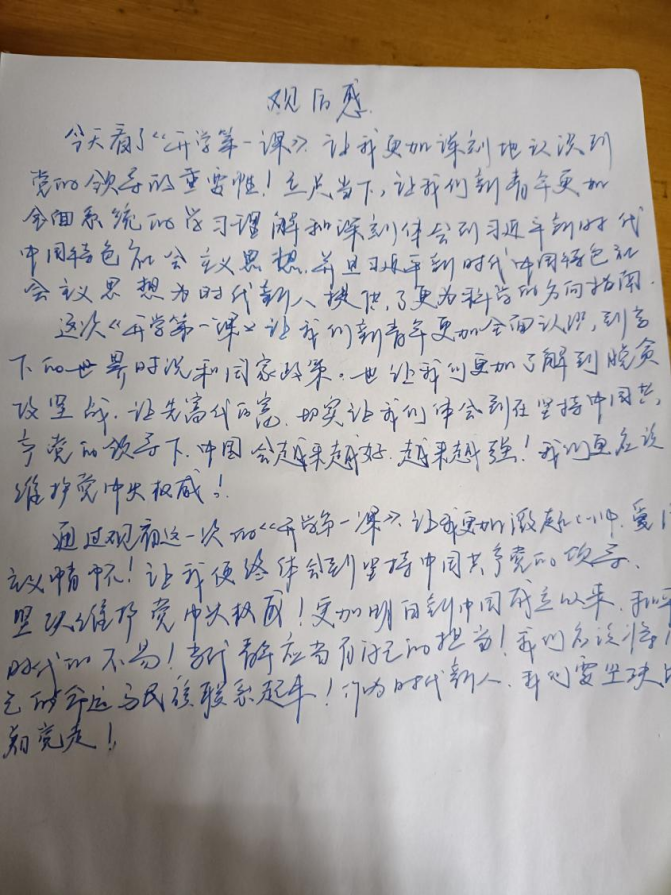 观后感.
今天看了《开学第一课》.让我更加深刻地认识到
党的领导的重要性！立足当下,让我们新青年更加
全面系统的学习理解和深刻体会到习近平新时代
中国特色社会主义思想.并且习近平新时代中国特色社
会主义思想为时代新人提供,了更为科学的方向指南.
这次《开学第一课》让我们新青年更加全面认识,到当
下的世界时况和国家政策.也让我们更加了解到脱贫
攻坚战.让先富代后富.切实让我们体会到在坚持中国共
产党的领导下.中国会越来越好.越来越强！我们更应该
维护党中央权威！
通过观看这一次的《开学第一课》.让我更加激起 爱
主义情怀！让我便终体会到坚持中国共产党的领导.
坚决维护党中央权威！更加明白到中国成立以来.和平
时代的不易！当代青年应当有自己的担当！我们应该将
己的命运与民族联系起来！作为时代新人.我们要坚决
跟党走！